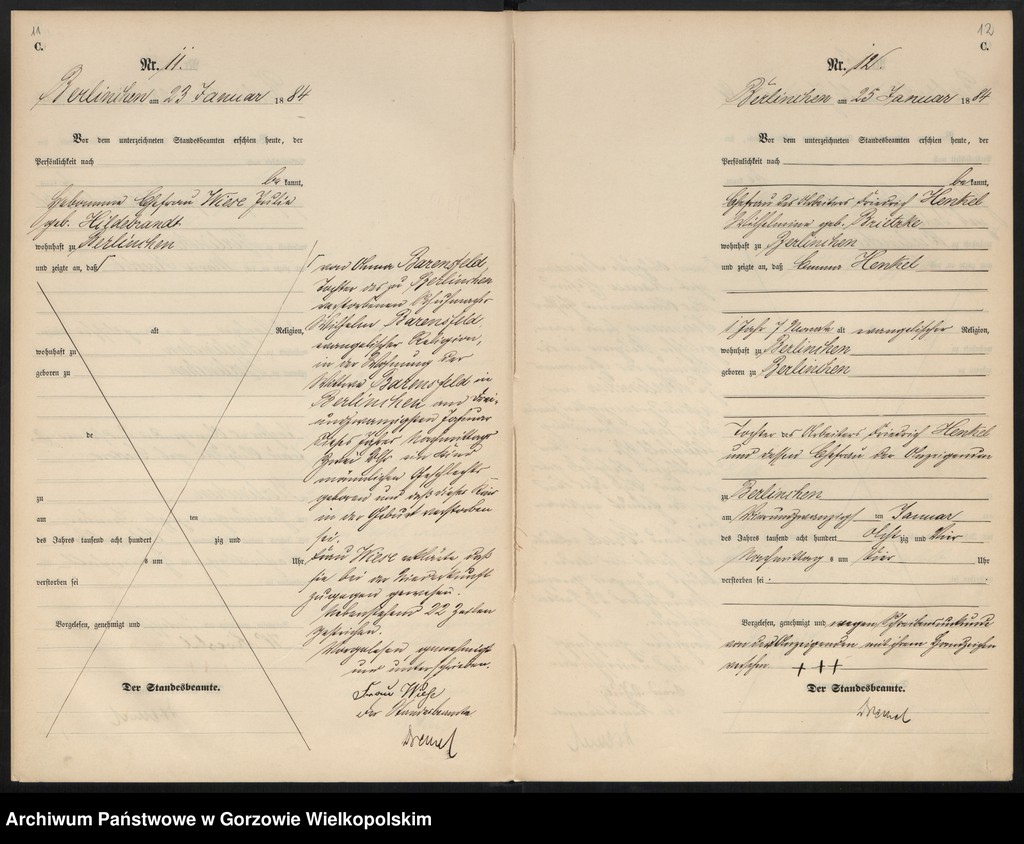 11
C.
Nr. 11.
Berlinchen am 23 Januar 1884
Vor dem unterzeichneten Standesbeamten erschien heute, der
Persönlichkeit nach
be kannt,
Hebamme Ehefrau Wiese Julie
geb. Hildebrandt
wohnhaft zu Berlinchen
und zeigte an, daß
alt Religion,
wohnhaft zu
geboren zu
de
zu
am ten
des Jahres tausend acht hundert zig und
s um Uhr
verstorben sei
Vorgelesen, genehmigt und
Der Standesbeamte.
von Anna Barensfeld
Tochter des zu Berlinchen
verstorbenen
Wilhelm Barensfeld,
evangelischer Religion,
in der Wohnung der
Wittwe Barensfeld in
Berlinchen am drei
undzwanzigsten Januar
dieses Jahres Nachmittags
zwei Uhr ein Kind
männlichen Geschlechts
geboren und daß dieses Kind
in der Geburt verstorben
sei.
Frau Wiese erklärte daß
sie bei der Niederkunft
zugegen gewesen.
Nebenstehend 22 Zeilen
gestrichen.
Vorgelesen genehmigt
und unterschrieben.
Frau Wiese
Der Standesbeamte
12
C.
Nr. 12
Berlinchen am 25 Januar 1884
Vor dem unterzeichneten Standesbeamten erschien heute, der
Persönlichkeit nach
be kannt,
Ehefrau des Arbeiters Friedrich Henkel
Wilhelmine geb. Brietzke
wohnhaft zu Berlinchen
und zeigte an, daß Emma Henkel
1 Jahr 7 Monate alt evangelischer Religion,
wohnhaft zu Berlinchen
geboren zu Berlinchen
Tochter des Arbeiters Friedrich Henkel
und dessen Ehefrau der Anzeigenden
zu Berlinchen
am ten Januar
des Jahres tausend acht hundert Achtzig und Vier
Nachmittag s um vier Uhr
verstorben sei.
Vorgelesen, genehmigt und wegen Schreibensunkunde
von der Anzeigenden mit ihrem Handzeichen
versehen +++
Der Standesbeamte.
Archiwum Państwowe w Gorzowie Wielkopolskim